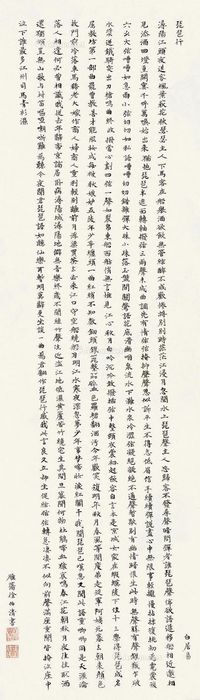 琵琶行
白居易
潯陽江頭夜送客楓葉荻花秋瑟瑟主人下馬客在船舉酒欲飲無管絃醉不成歡慘將別別時茫茫江浸月忽聞水上琵琶聲主人忘歸客不發尋聲暗問彈者誰琵琶聲停欲語遲移船相近邀相
見添酒回燈重開宴千呼萬喚始出來猶抱琵琶半遮面轉軸撥絃三兩聲未成曲調先有情絃絃掩抑聲聲思似訴平生不得志低眉信手續續彈說盡心中無限事輕攏慢撚抹復挑初為霓裳後
六幺大絃嘈嘈如急雨小絃切切如私語嘈嘈切切錯雜彈大珠小珠落玉盤間關鶯語花底滑幽咽泉流水下灘水泉冷澀絃凝絕凝絕不通聲暫歇別有幽愁暗恨生此時無聲勝有聲銀瓶乍破
水漿迸鐵騎突出刀槍鳴曲終收撥當心畫四絃一聲如裂帛東船西舫悄無言唯見江心秋月白沉吟放撥插絃中整頓衣裳起斂容自言本是京城女家在蝦蟆陵下住十三學得琵琶成名
屬教坊第一部曲罷曾教善才服妝成每被秋娘妒五陵年少爭纏頭一曲紅綃不知數鈿頭銀篦擊節碎血色羅裙翻酒污今年歡笑復明年秋月春風等閒度弟走從軍阿姨死暮去朝來顏色
故門前冷落車馬稀老大嫁作商人婦商人重利輕別離前月浮梁買茶去去來江口守空船繞船月明江水寒夜深忽夢少年事夢啼妝淚紅闌干我聞琵琶已歎息又聞此語重唧唧同是天涯淪
落人相逢何必曾相識我從去年辭帝京謫居臥病潯陽城潯陽地僻無音樂終歲不聞絲竹聲住近湓江地低濕黃蘆苦竹繞宅生其間旦暮聞何物杜鵑啼血猿哀鳴春江花朝秋月夜往往取酒
還獨傾豈無山歌與村笛嘔啞嘲哳難為聽今夜聞君琵琶語如聽仙樂耳暫明莫辭更坐彈一曲為君翻作琵琶行感我此言良久立卻坐促絃絃轉急淒淒不似向前聲滿座重聞皆掩泣座中
泣下誰最多江州司馬青衫濕
雁蕩徐伯清書